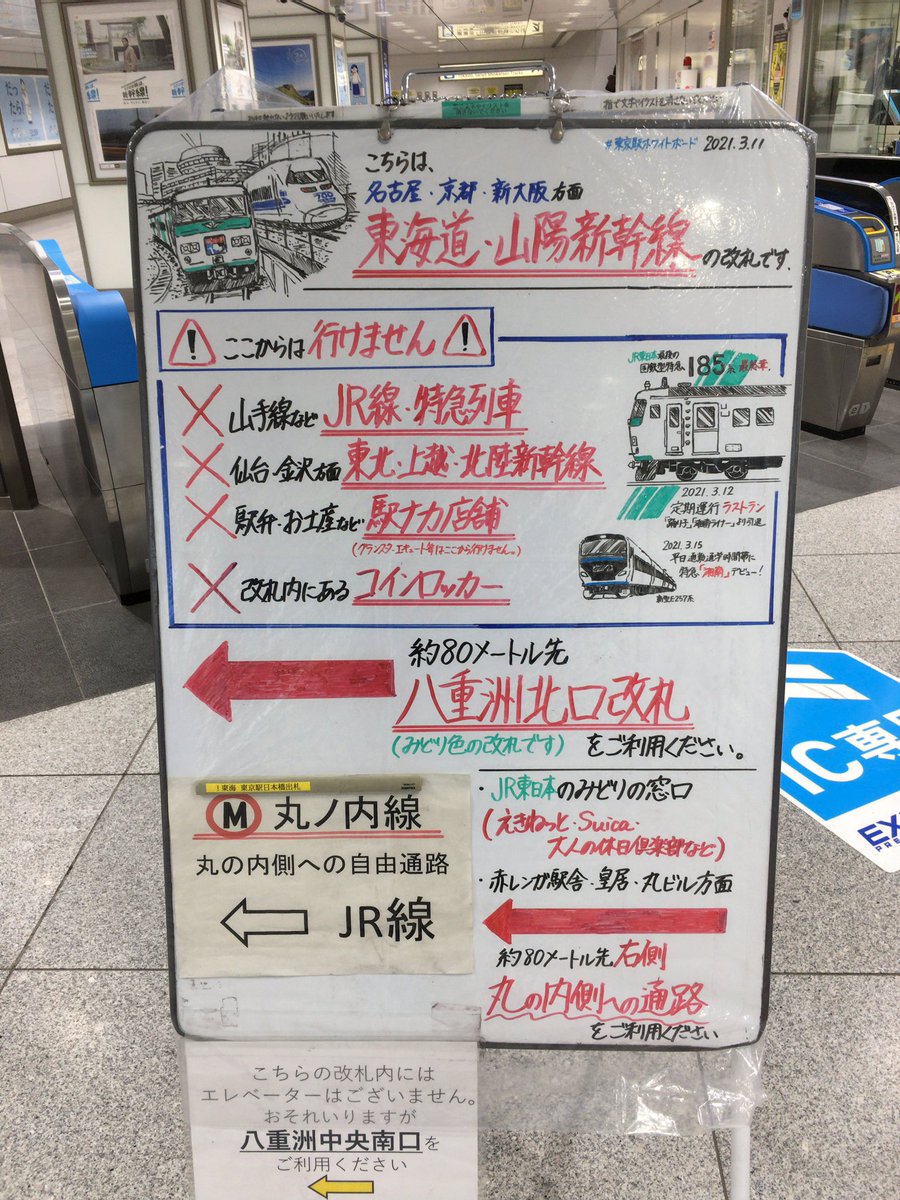 #東京駅ホワイトボード 2021.3.11
こちらは、
名古屋・京都・新大阪方面
東海道・山陽新幹線の改札です.
ここからは行けません
山手線など JR線・特急列車
仙台・金沢方面 東北・上越・北陸新幹線
駅弁・お土産など 駅ナカ店舗
(グランスタ・エキュート等はここから行けません。)
改札内にある コインロッカー
JR東日本最後の
国鉄型特急、185系 最終章.
2021.3.12
定期運行 ラストラン
「踊り子」「湘南ライナー」より引退
2021.3.15
平日通勤通学時間帯に
特急「湘南」デビュー!
E257系
約80メートル先
八重洲北口改札
(みどり色の改札です) をご利用ください。
!東海 東京駅日本橋出札
M 丸ノ内線
丸の内側への自由通路
JR線
・JR東日本のみどりの窓口
(えきねっと・Suica・
大人の休日倶楽部など)
・赤レンガ駅舎・皇居・丸ビル方面
約80メートル先 右側
丸の内側への通路
をご利用ください
こちらの改札内には
エレベーターはございません。
おそれいりますが
八重洲中央南口を
ご利用ください
IC専
EX